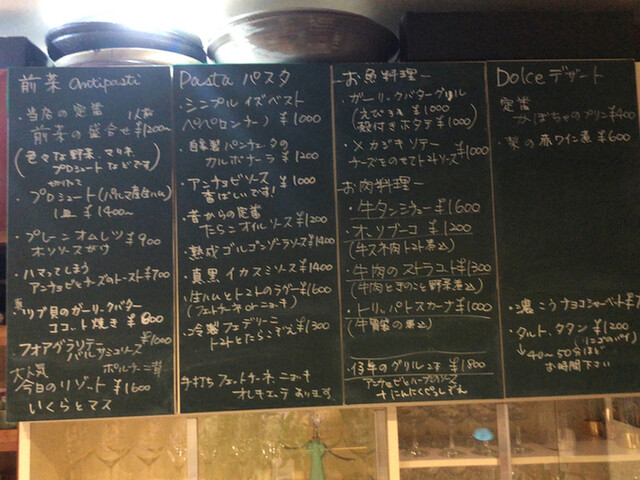 前菜 antipasti
・当店の定番 1人前
前菜の盛合せ ¥1200〜
(色々な野菜、マリネ、
プロシュートなどです)
切りたて
・プロシュート(パルマ産生ハム)
1皿 ¥1400〜
・プレーンオムレツ ¥900
ボンソースがけ
・ハマってしまう
アンチョビとチーズのトースト ¥700
・真ツブ貝のガーリックバター
ココット焼き ¥800
・フォアグラソテー ¥1600
バルサミコソース
大人気 ポルチーニ茸
今日のリゾット ¥1600
いくらとマス
Pasta パスタ
・シンプル イズ ベスト
ペペロンチーノ ¥1000
・自家製パンチェッタの
カルボナーラ ¥1200
・アンチョビソース ¥1000
香ばしいです!
・昔からの定番
たらこオイルソース ¥1200
・熟成ゴルゴンゾーラソース ¥1400
・真黒イカスミソース ¥1400
・生ハムとトマトのラグー ¥1600
(フェトチーネ or ニョッキ)
・冷製フェデリーニ ¥1300
トマトとたらこぞえ
手打ち フェットチーネ、ニョッキ
オレキエッテ あります
お魚料理ー
・ガーリックバターグリル
(えび3本 ¥1000
殻付きホタテ ¥1000)
・メカジキソテー
チーズをのせてトマトソース ¥1000
お肉料理ー
・牛タンシチュー ¥1600
・オッソブーコ ¥1200
(牛スネ肉トマト煮込)
・牛肉のストラコット ¥1300
(牛肉ときのこと野菜煮込)
・トリッパトスカーナ ¥1000
(牛胃袋の煮込)
・仔羊のグリル 2本 ¥1800
アンチョビとハーブのソース
+にんにくとうしぞえ
Dolce デザート
定番
・かぼちゃのプリン ¥400
・梨の赤ワイン煮 ¥600
・濃こうチョコシャーベット
・タルト、タタン ¥1200
(リンゴのパイ)
↓40〜50分ほど
お時間下さい